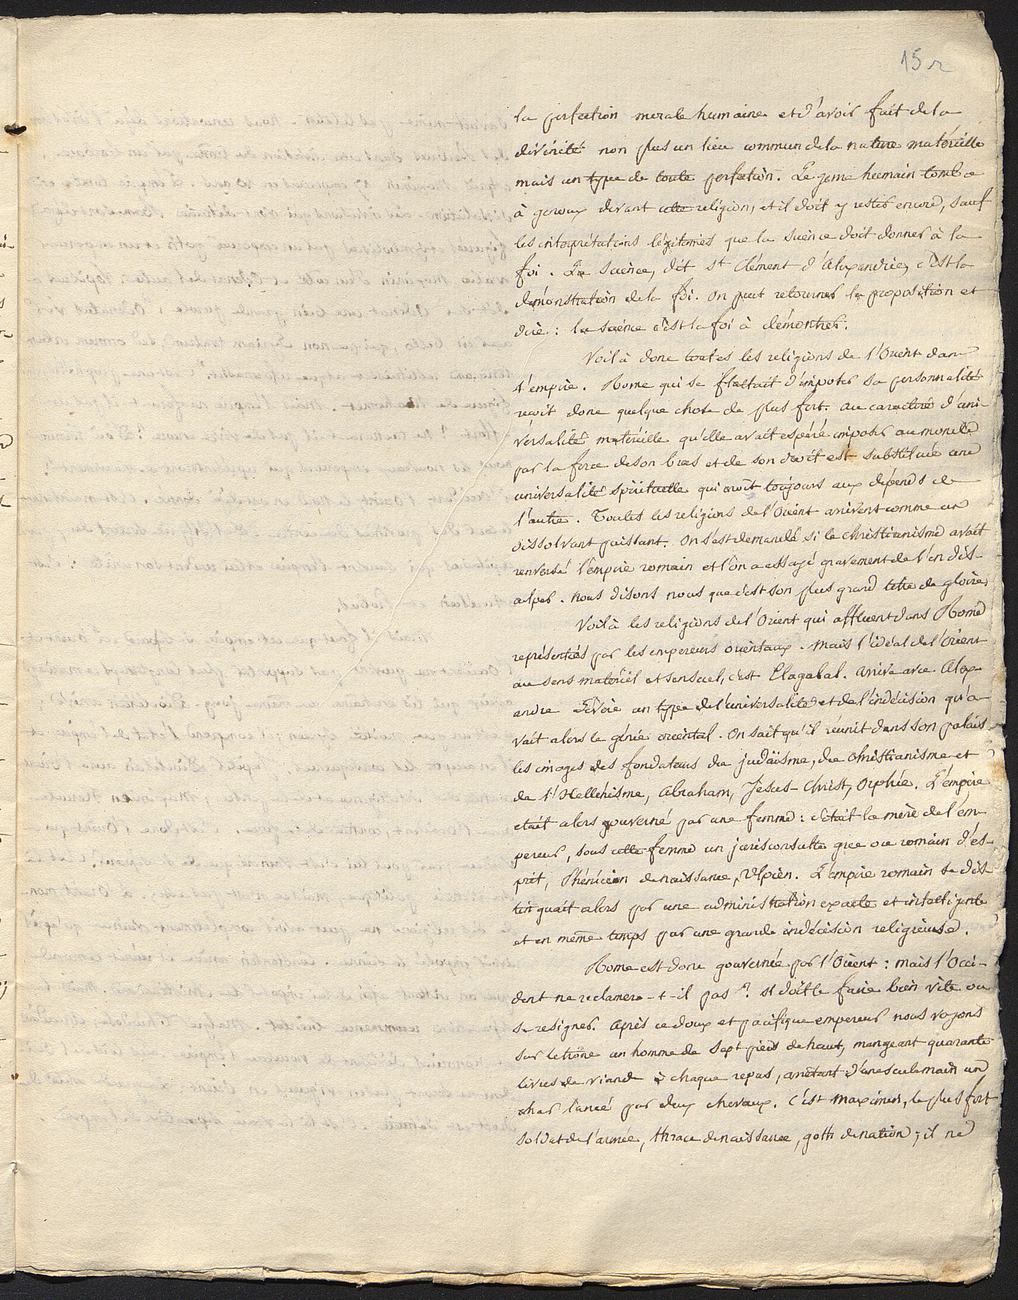 15 r
la perfection morale humaine et d'avoir fait de la
divinité non plus un lieu commun de la nature matérielle
mais un type de toute perfection. Le genre humain tombe
à genoux devant cette religion, et il doit y rester encore, sauf
les interprétations légitimes que la science doit donner à la
foi. La science, dit st Clément d'Alexandrie, c'est la
démonstration de la foi. On peut retourner la proposition et
dire : la science c'est la foi à démontrer.
Voilà donc toutes les religions de l'Orient dans
l'empire. Rome qui se flattait d'imposer sa personnalité
reçoit donc quelque chose de plus fort. au caractère d'uni-
versalité matérielle qu'elle avait espéré imposer au monde
par la force de son bras et de son droit est substituée une
universalité spirituelle qui croît toujours aux dépends de
l'autre. Toutes les religions de l'Orient arrivent comme un
dissolvant puissant. On s'est demandé si le christianisme avait
renversé l'empire romain et l'on a essayé gravement de l'en dis-
culper. nous disons nous que c'est son plus grand titre de gloire,
Voilà les religions de l'Orient qui affluent dans Rome
représentées par les empereurs orientaux. Mais l'idéal de l'Orient
au sens matériel et sensuel, c'est Elagabal. Arrive avec Alex-
andre Sévère un type de l'universalité et de l'indécision qu'a-
vait alors le génie oriental. On sait qu'il réunit dans son palais
les images des fondateurs du judaïsme, du christianisme et
de l'Hellénisme, Abraham, Jesus-Christ, Orphée. L'empire
était alors gouverné par une femme : c'était la mère de l'em-
pereur, sous cette femme un jurisconsulte grec ou romain d'es-
prit, Phénicien de naissance, Ulpien. L'empire romain se dis-
tinguait alors par une administration exacte et intelligente
et en même temps par une grande indécision religieuse.
Rome est donc gouvernée par l'Orient : mais l'Occi-
dent ne reclamera-t-il pas ? il doit le faire bien vite ou
se resigner. Après ce doux et pacifique empereur nous voyons
sur le trône un homme de sept pieds de haut, mangeant quarante
livres de viande à chaque repas, arrêtant d'une seule main un
char lancé par deux chevaux. C'est Maximin, le plus fort
soldat de l'armée, thrace de naissance, goth de nation ; il ne